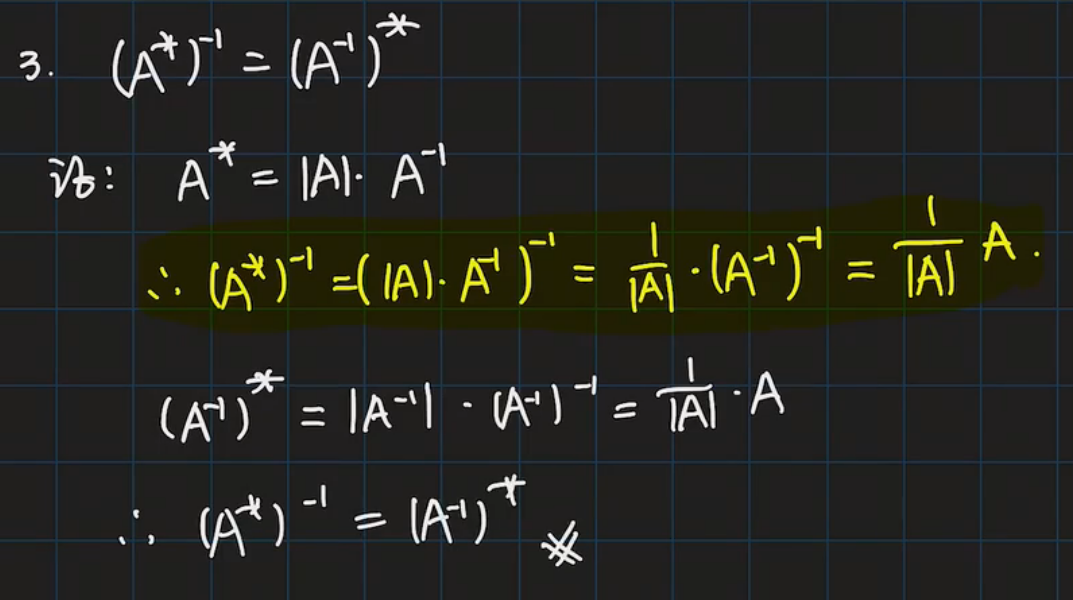 3. (A*)⁻¹ = (A⁻¹)*
证: A* = |A|· A⁻¹
∴ (A*)⁻¹ =(|A|· A⁻¹)⁻¹ = 1/|A| · (A⁻¹)⁻¹ = 1/|A| A .
(A⁻¹)* = |A⁻¹| · (A⁻¹)⁻¹ = 1/|A| · A
∴ (A*)⁻¹ = (A⁻¹)* ※